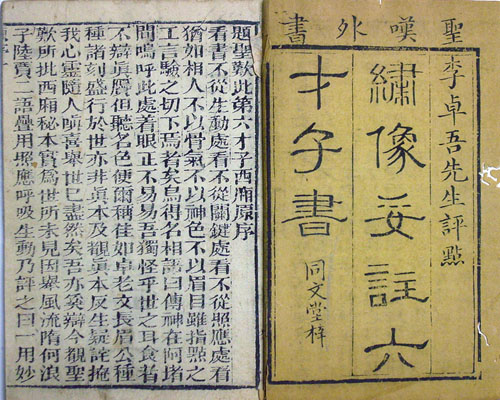 聖嘆外書
李卓吾先生評點
繡像妥註六
才子書
同文堂梓
題聖歎此第六才子西廂原序
看書不從生動處看不從關鍵處看不從照應處看
猶如相人不以骨氣不以神色不以眉目雖指點之
工言驗之切下焉者矣烏得名相語曰傳神在阿堵
間嗚呼此處着眼正不易易吾獨怪乎世之耳食者
不辯眞贋但聽名色便爾稱佳如卓老文長眉公種
種諸刻盛行於世亦非眞本及觀眞本反生疑詫掩
我心靈隨人嗔喜舉世已盡然矣吾亦奚辯今觀聖
歎所批西廂秘本實爲世所未見因舉風流隋何浪
子陸賈二語疊用照應呼吸生動乃評之曰一用妙